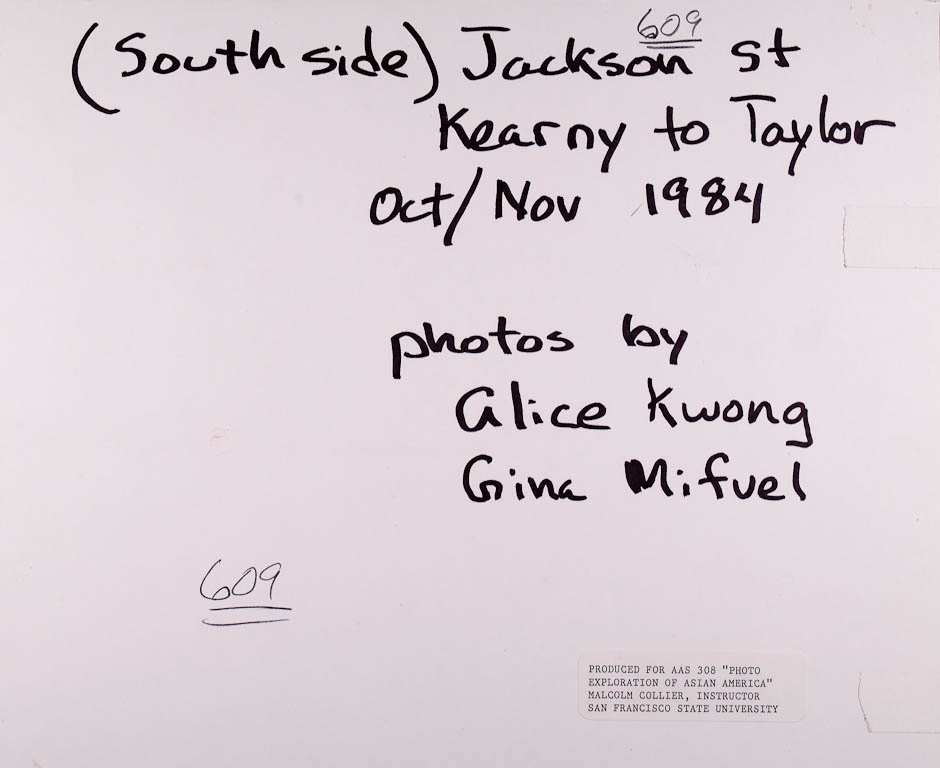 609
(South side) Jackson st
Kearny to Taylor
Oct/Nov 1984
photos by
Alice Kwong
Gina Mifuel
609
PRODUCED FOR AAS 308 "PHOTO
EXPLORATION OF ASIAN AMERICA"
MALCOLM COLLIER, INSTRUCTOR
SAN FRANCISCO STATE UNIVERSITY